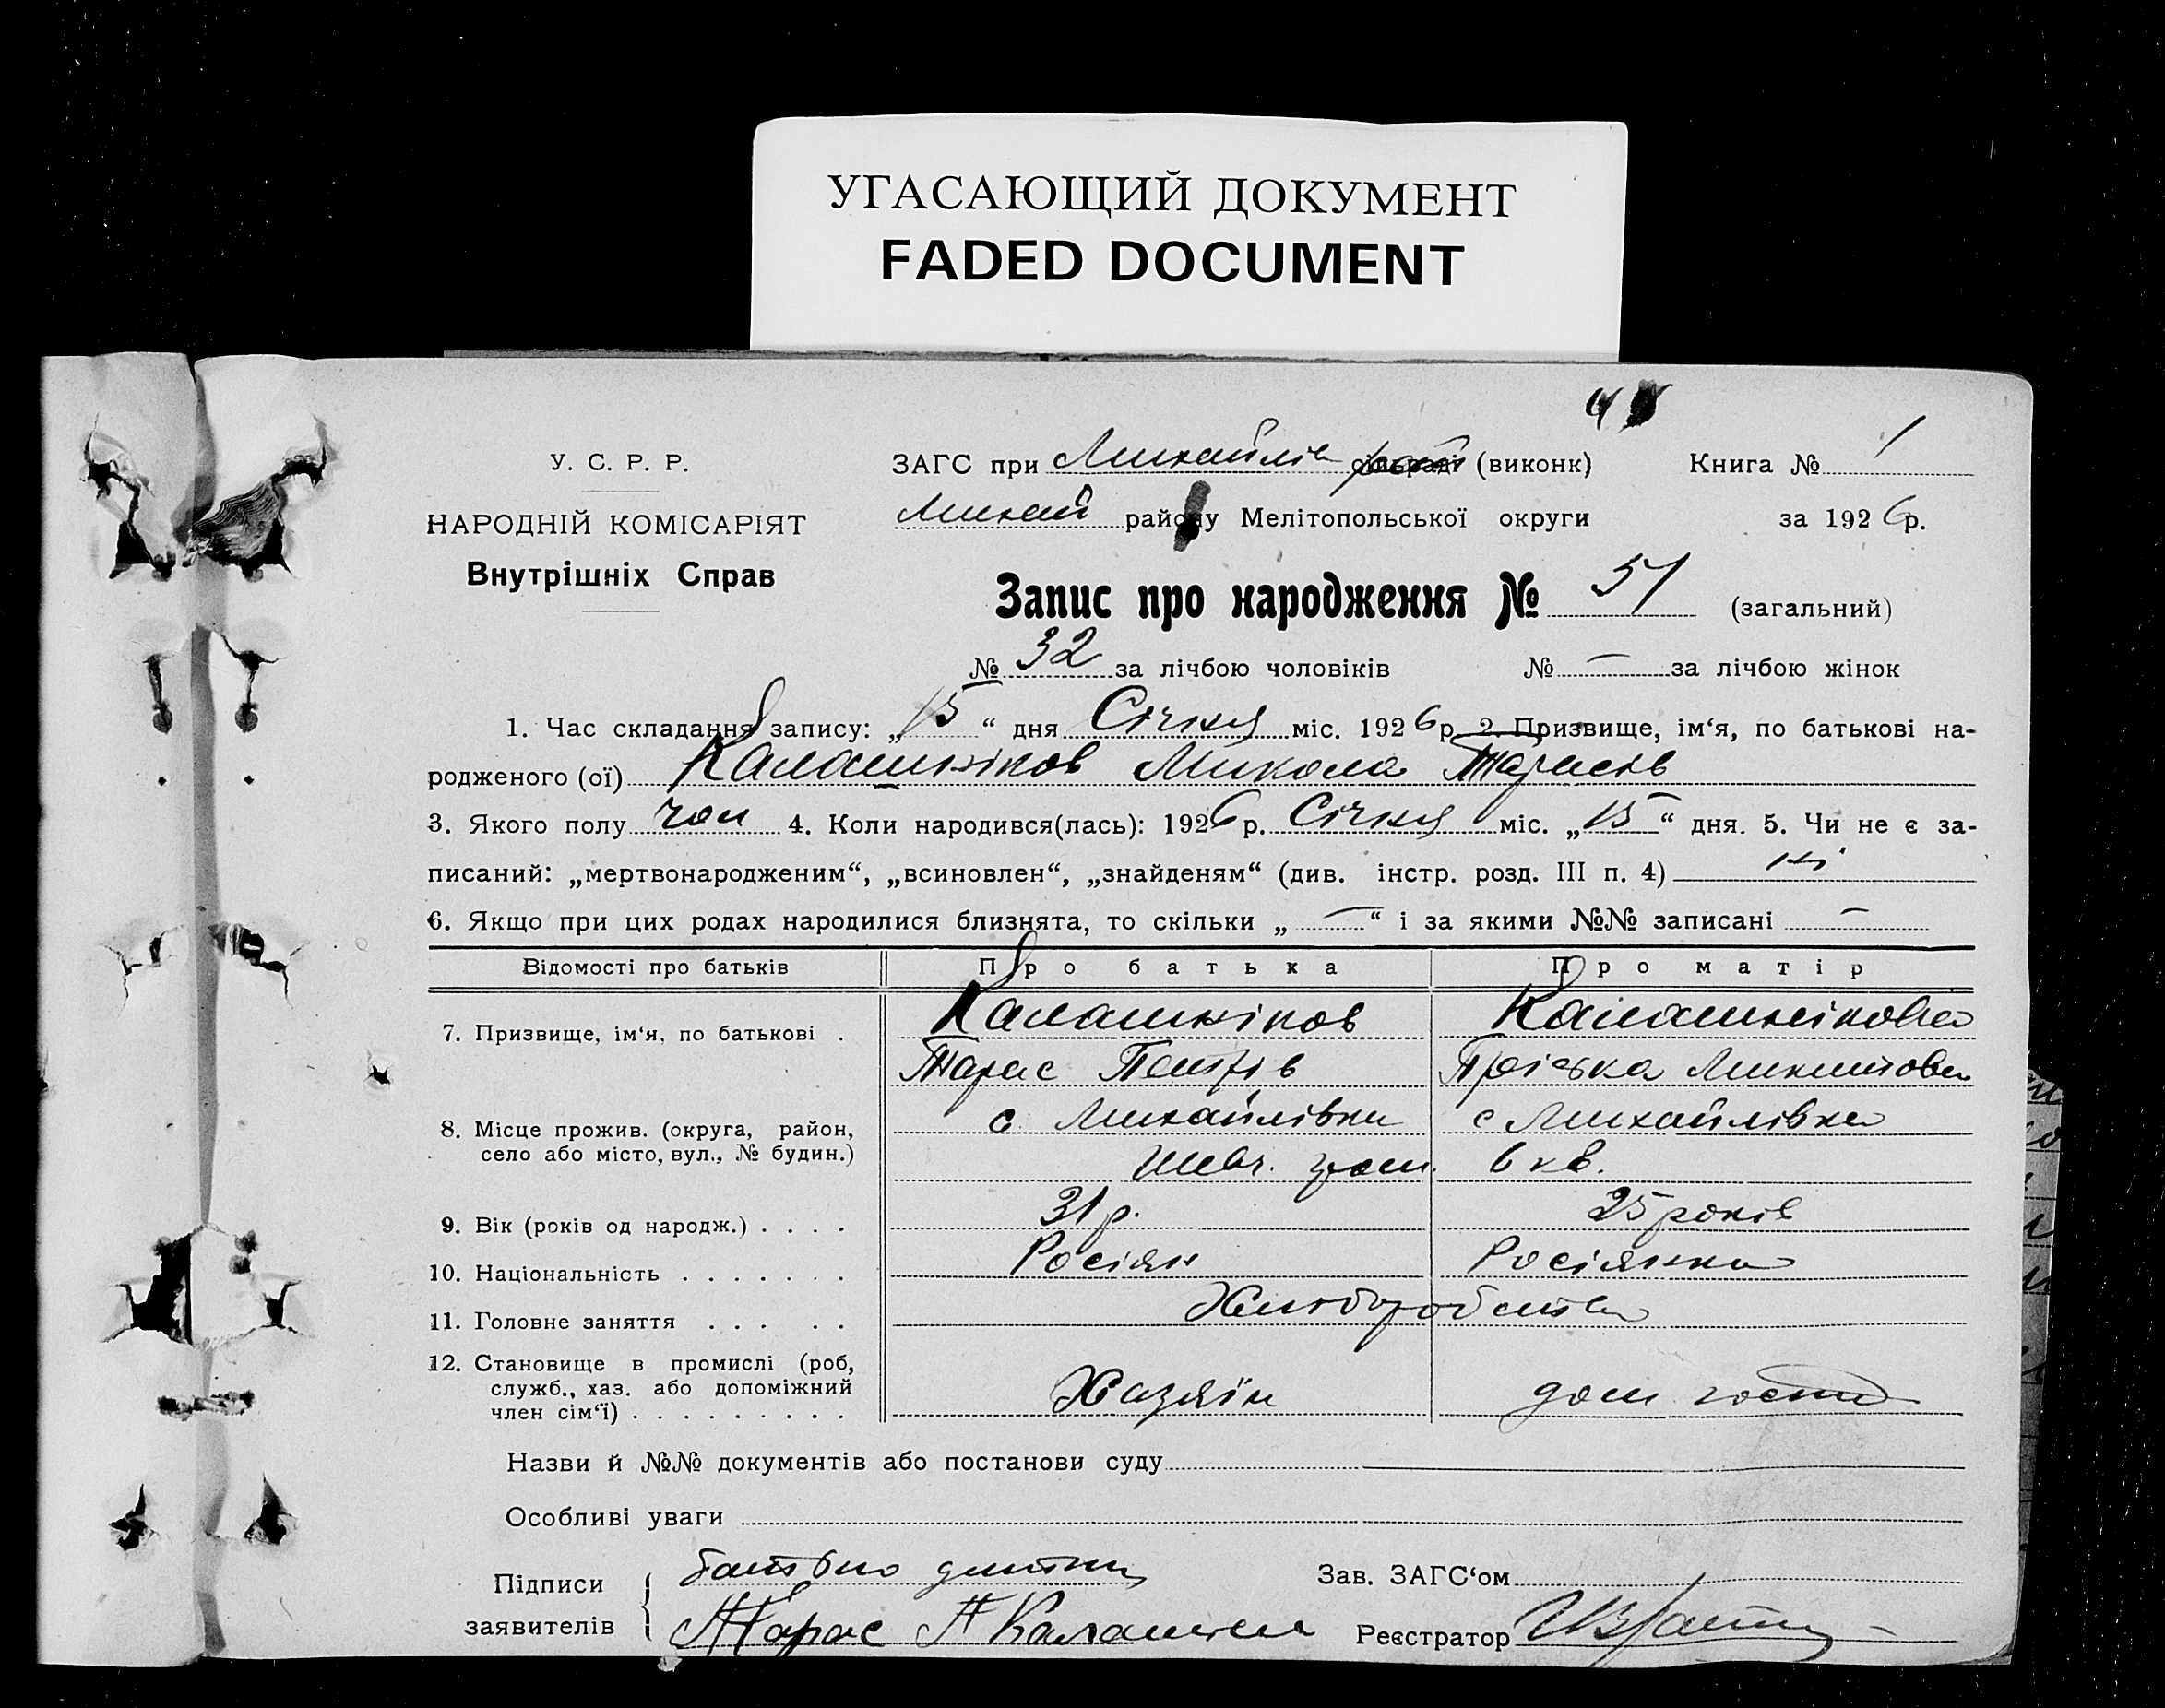 УГАСАЮЩИЙ ДОКУМЕНТ
FADED DOCUMENT
У. С. Р. Р.
НАРОДНІЙ КОМІСАРІЯТ
Внутрішніх Справ
ЗАГС при Михайлів (виконк) Книга № 1
Михай району Мелітопольської округи за 1926 р.
Запис про народження № 51 (загальний)
№ 32 за лічбою чоловіків № — за лічбою жінок
1. Час складання запису: „15“ дня Січня міс. 1926 р. 2. Призвище, ім‘я, по батькові на-
родженого (ої) Калашніков Микола Тарасів
3. Якого полу чол 4. Коли народився(лась): 1926 р. Січня міс. „15“ дня. 5. Чи не є за-
писаний: „мертвонародженим“, „всиновлен“, „знайденям“ (див. інстр. розд. III п. 4) ні
6. Якщо при цих родах народилися близнята, то скільки „—“ і за якими №№ записані —
Відомості про батьків Про батька Про матір
7. Призвище, ім‘я, по батькові . Калашніков Калашнікова
Тарас Петрів Пріська Микитова
8. Місце прожив. (округа, район, с Михайлівка с Михайлівка
село або місто, вул., № будин.) Шевч. гром. 6 кв.
9. Вік (років од народж.) . . . . 31 р. 25 років
10. Національність . . . . . . . Росіян Росіянка
11. Головне заняття . . . . . Хліборобство
12. Становище в промислі (роб,
служб., хаз. або допоміжний
член сім‘ї) . . . . . . . . . Хазяїн дом госп
Назви й №№ документів або постанови суду
Особливі уваги
Підписи батько дитини Зав. ЗАГС‘ом
заявителів Тарас П Калашнік Реєстратор